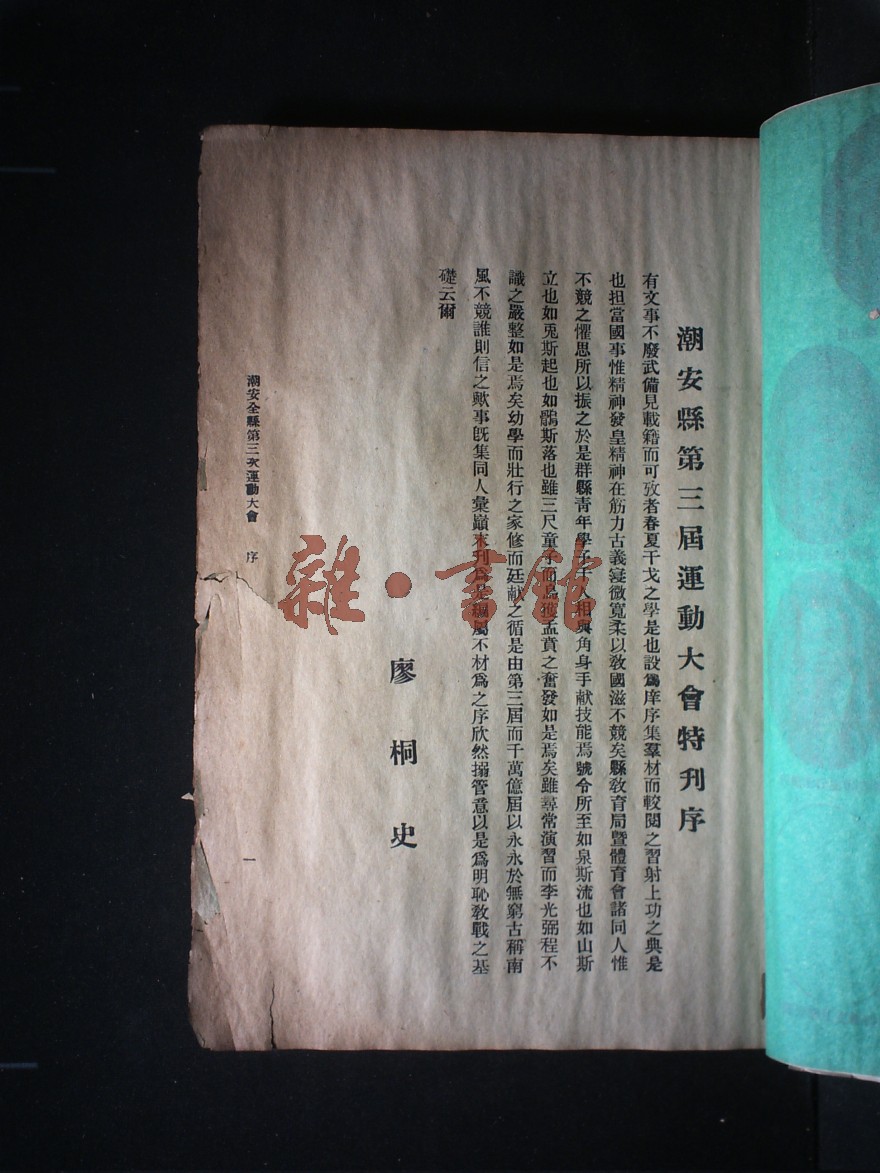 潮安縣第三屆運動大會特刊序
有文事不廢武備見載籍而可攷者春夏干戈之學是也設爲庠序集羣材而較閱之習射上功之典是
也担當國事惟精神發皇精神在筋力古義寖微寬柔以敎國滋不競矣縣敎育局暨體育會諸同人惟
不競之懼思所以振之於是群縣靑年學子千人相與角身手献技能焉號令所至如泉斯流也如山斯
立也如兎斯起也如鶻斯落也雖三尺童子而烏獲孟賁之奮發如是焉矣雖尋常演習而李光弼程不
識之嚴整如是焉矣幼學而壯行之家修而廷献之循是由第三屆而千萬億屆以永永於無窮古稱南
風不競誰則信之歟事旣集同人彙顚末刋爲是編屬不材爲之序欣然搦管意以是爲明恥敎戰之基
礎云爾
廖桐史
潮安全縣第三次運動大會 序
一
雜·書館